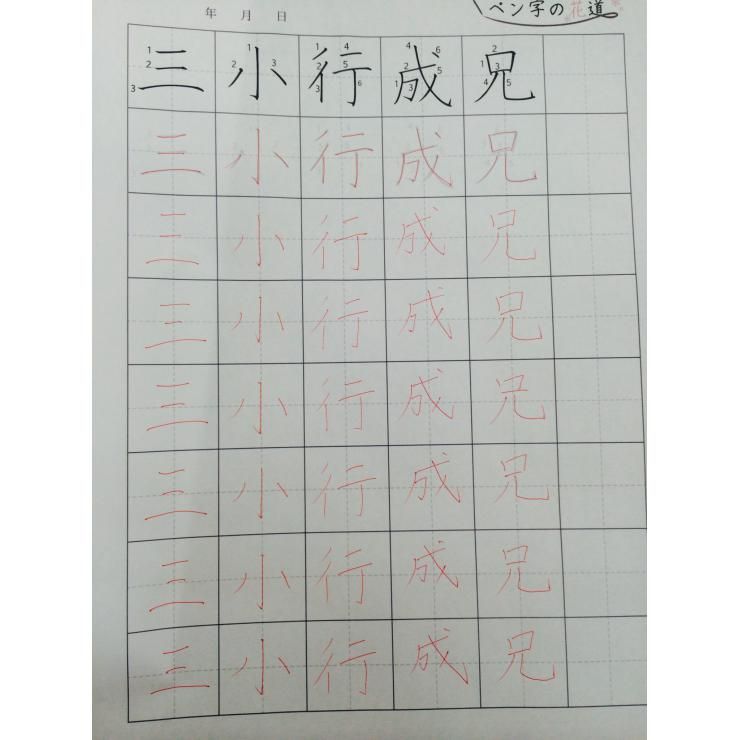 年 月 日
ペン字の花道
三 小 行 成 兄
三 小 行 成 兄
三 小 行 成 兄
三 小 行 成 兄
三 小 行 成 兄
三 小 行 成 兄
三 小 行 成 兄
三 小 行 成 兄